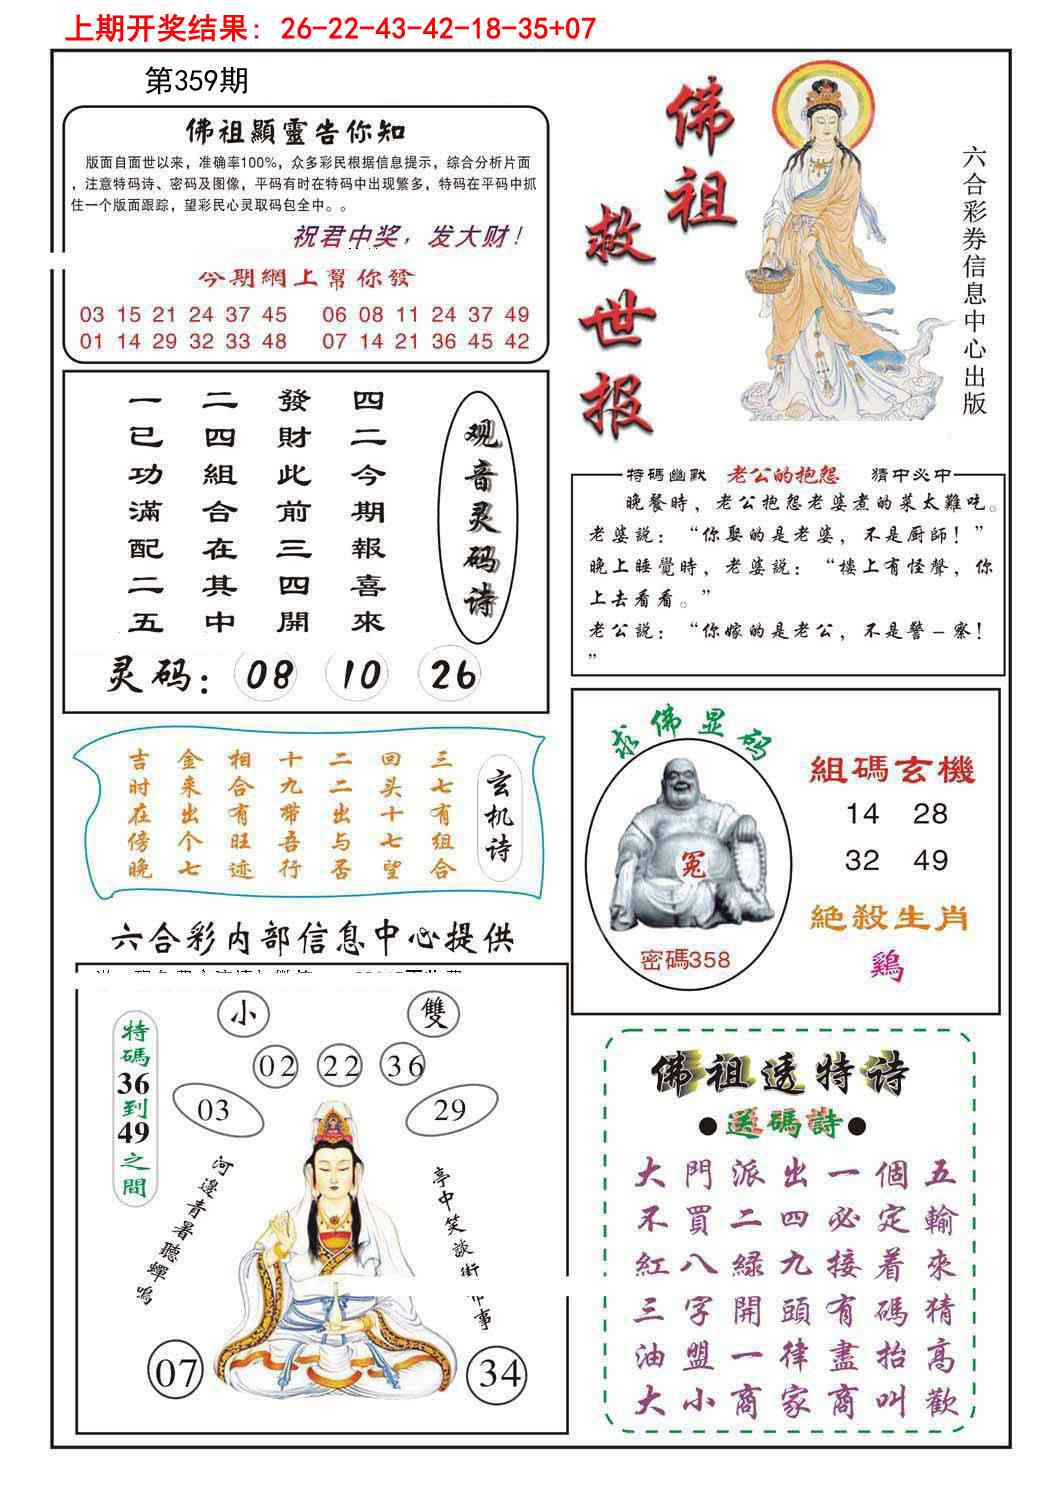 上期开奖结果：26-22-43-42-18-35+07
第359期
佛祖顯靈告你知
版面自面世以来，准确率100%，众多彩民根据信息提示，综合分析片面
，注意特码诗、密码及图像，平码有时在特码中出现繁多，特码在平码中抓
住一个版面跟踪，望彩民心灵取码包全中。。
祝君中奖，发大财！
今期網上幫你發
03 15 21 24 37 45   06 08 11 24 37 49
01 14 29 32 33 48   07 14 21 36 45 42
佛祖救世报
六合彩券信息中心出版
一二發四
已四財二
功組此今
滿合前期
配在三報
二其四喜
五中開來
观音灵码诗
灵码：08 10 26
特碼幽默 老公的抱怨 猜中必中
晚餐時，老公抱怨老婆煮的菜太難吃。
老婆説：“你娶的是老婆，不是厨師！”
晚上睡覺時，老婆説：“樓上有怪聲，你
上去看看。”
老公説：“你嫁的是老公，不是警－察！
”
吉金相十二回三
时来合九二头七
在出有带出十有
傍个旺吾与七组
晚七迹行否望合
玄机诗
求佛显码
冤
密碼358
組碼玄機
14 28
32 49
絕殺生肖
鷄
六合彩内部信息中心提供
小 雙
02 22 36
03 29
特碼36到49之間
河邊青暑聽蟬鳴
亭中笑談街
事
07 34
佛祖透特诗
●送碼詩●
大門派出一個五
不買二四必定輸
紅八緑九接着來
三字開頭有碼猜
油盟一律盡抬高
大小商家商叫歡